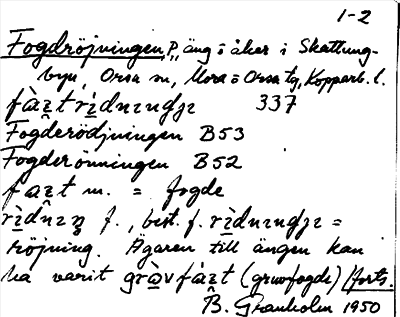 1-2
Fogdröjningen, P., äng o åker i Skattung-
byn, Orsa sn, Mora o Orsa tg, Kopparb. l.
337
Fogderödjningen B53
Fogderönningen B52
m. = fogde
f., best. f. =
röjning. Ägaren till ängen kan
ha varit (gruvfogde) /forts.
B. Granholm 1950